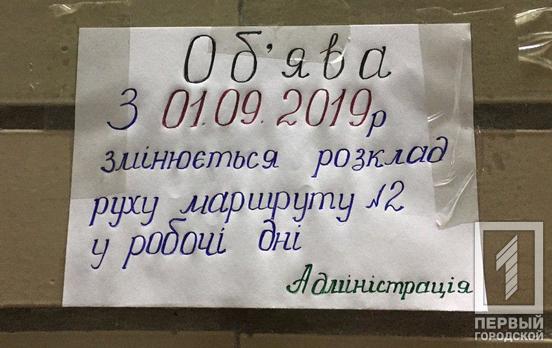 Об'ява
З 01.09.2019р
змінюється розклад
руху маршруту №2
у робочі дні
Адміністрація
1
ПЕРВЫЙ
ГОРОДСКОЙ